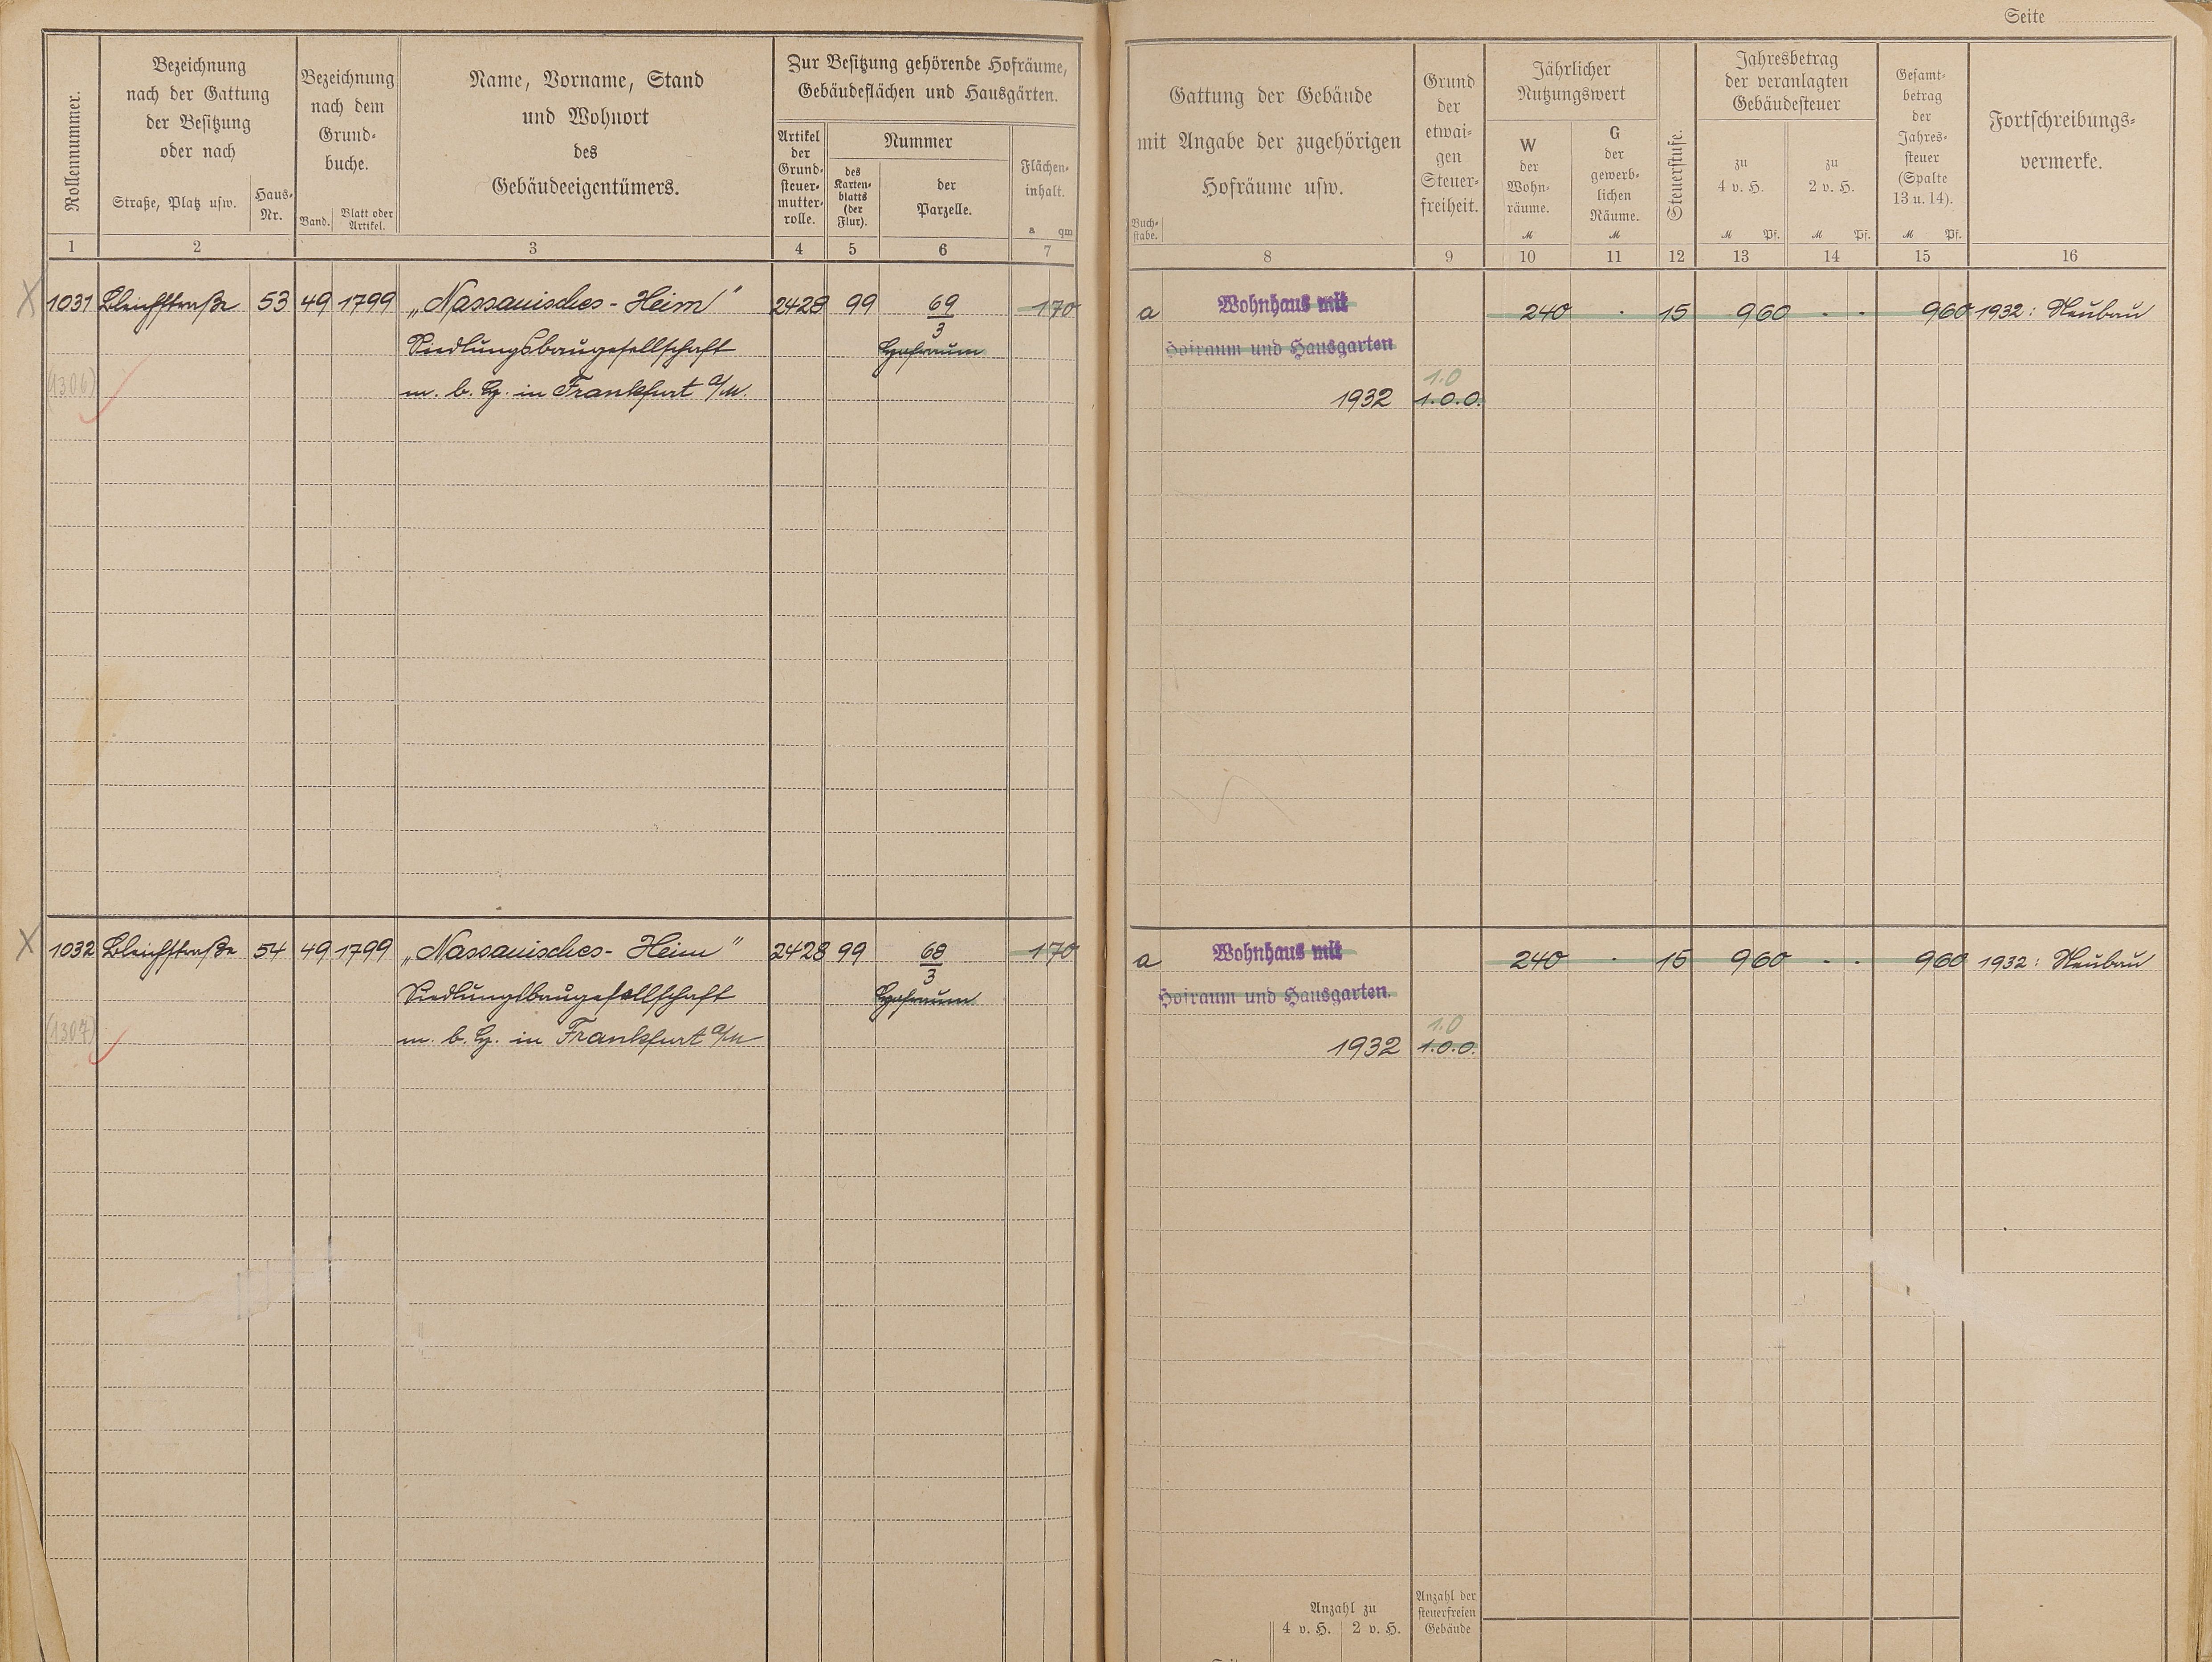 Seite
Rollennummer.
Bezeichnung
nach der Gattung
der Besitzung
oder nach
Straße, Platz usw.
Haus-
Nr.
Bezeichnung
nach dem
Grund-
buche.
Band.
Blatt oder
Artikel.
Name, Vorname, Stand
und Wohnort
des
Gebäudeeigentümers.
Zur Besitzung gehörende Hofräume,
Gebäudeflächen und Hausgärten.
Artikel
der
Grund-
steuer-
mutter-
rolle.
Nummer
des
Karten-
blatts
(der
Flur).
der
Parzelle.
Flächen-
inhalt.
a qm
Gattung der Gebäude
mit Angabe der zugehörigen
Hofräume usw.
Buch-
stabe.
Grund
der
etwai-
gen
Steuer-
freiheit.
Jährlicher
Nutzungswert
W
der
Wohn-
räume.
M
G
der
gewerb-
lichen
Räume.
M
Steuerstufe.
Jahresbetrag
der veranlagten
Gebäudesteuer
zu
4 v. H.
M Pf.
zu
2 v. H.
M Pf.
Gesamt-
betrag
der
Jahres-
steuer
(Spalte
13 u. 14).
M Pf.
Fortschreibungs-
vermerke.
1 2 3 4 5 6 7 8 9 10 11 12 13 14 15 16
X 1031 Bleichstraße 53 49 1799 „Nassauisches-Heim" 2428 99 69/3 170 a Wohnhaus mit 240 · 15 960 · · 960 1932: Neubau
Siedlungsbaugesellschaft Hofraum Hofraum und Hausgarten
(1306) m. b. H. in Frankfurt a/M. 1.0
1932 1.0.0.
X 1032 Bleichstraße 54 49 1799 „Nassauisches-Heim" 2428 99 68/3 170 a Wohnhaus mit 240 · 15 960 · · 960 1932: Neubau
Siedlungsbaugesellschaft Hofraum Hofraum und Hausgarten.
(1307) m. b. H. in Frankfurt a/M 1.0
1932 1.0.0.
Anzahl zu
4 v. H. 2 v. H.
Anzahl der
steuerfreien
Gebäude